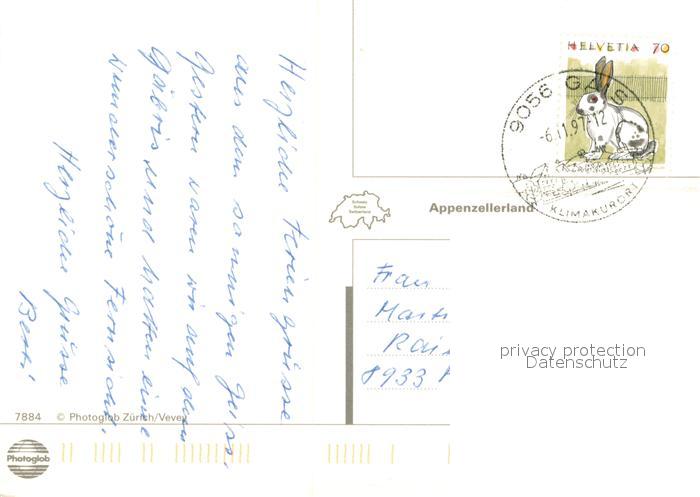 Herzliche Feriengrüsse
aus dem sonnigen Gais.
Gestern waren wir auf dem
Gäbris und hatten eine
wunderschöne Fernsicht.
Herzliche Grüsse
HELVETIA 70
9056 GAIS
-6.11.97-12
KLIMAKURORT
Schweiz
Suisse
Switzerland
Appenzellerland
Frau
8933
privacy protection
Datenschutz
7884 © Photoglob Zürich/Vevey
Photoglob